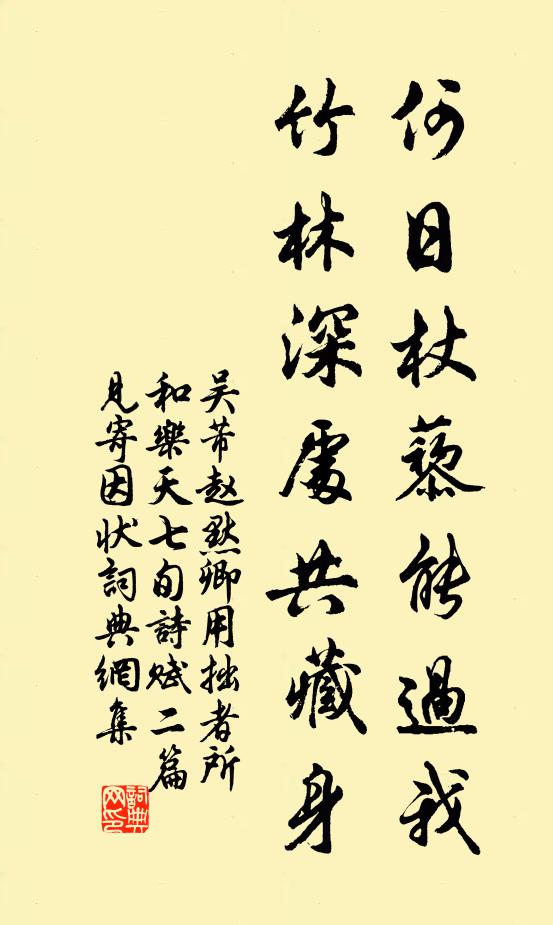 何日杖藜能過我
竹林深處共藏身
吴芾赵默卿用拙者所
和樂天七旬詩赋二篇
見寄因状詞典網集
詞典網印